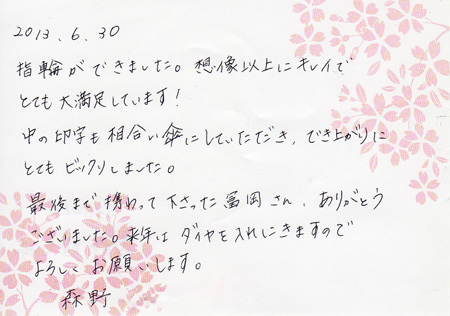 2013.6.30
指輪ができました。想像以上にキレイで
とても大満足しています!
中の印字も相合い傘にしていただき、でき上がりに
とてもビックリしました。
最後まで携わって下さった冨岡さん、ありがとう
ございました。来年はダイヤを入れにきますので
よろしくお願いします。
森野